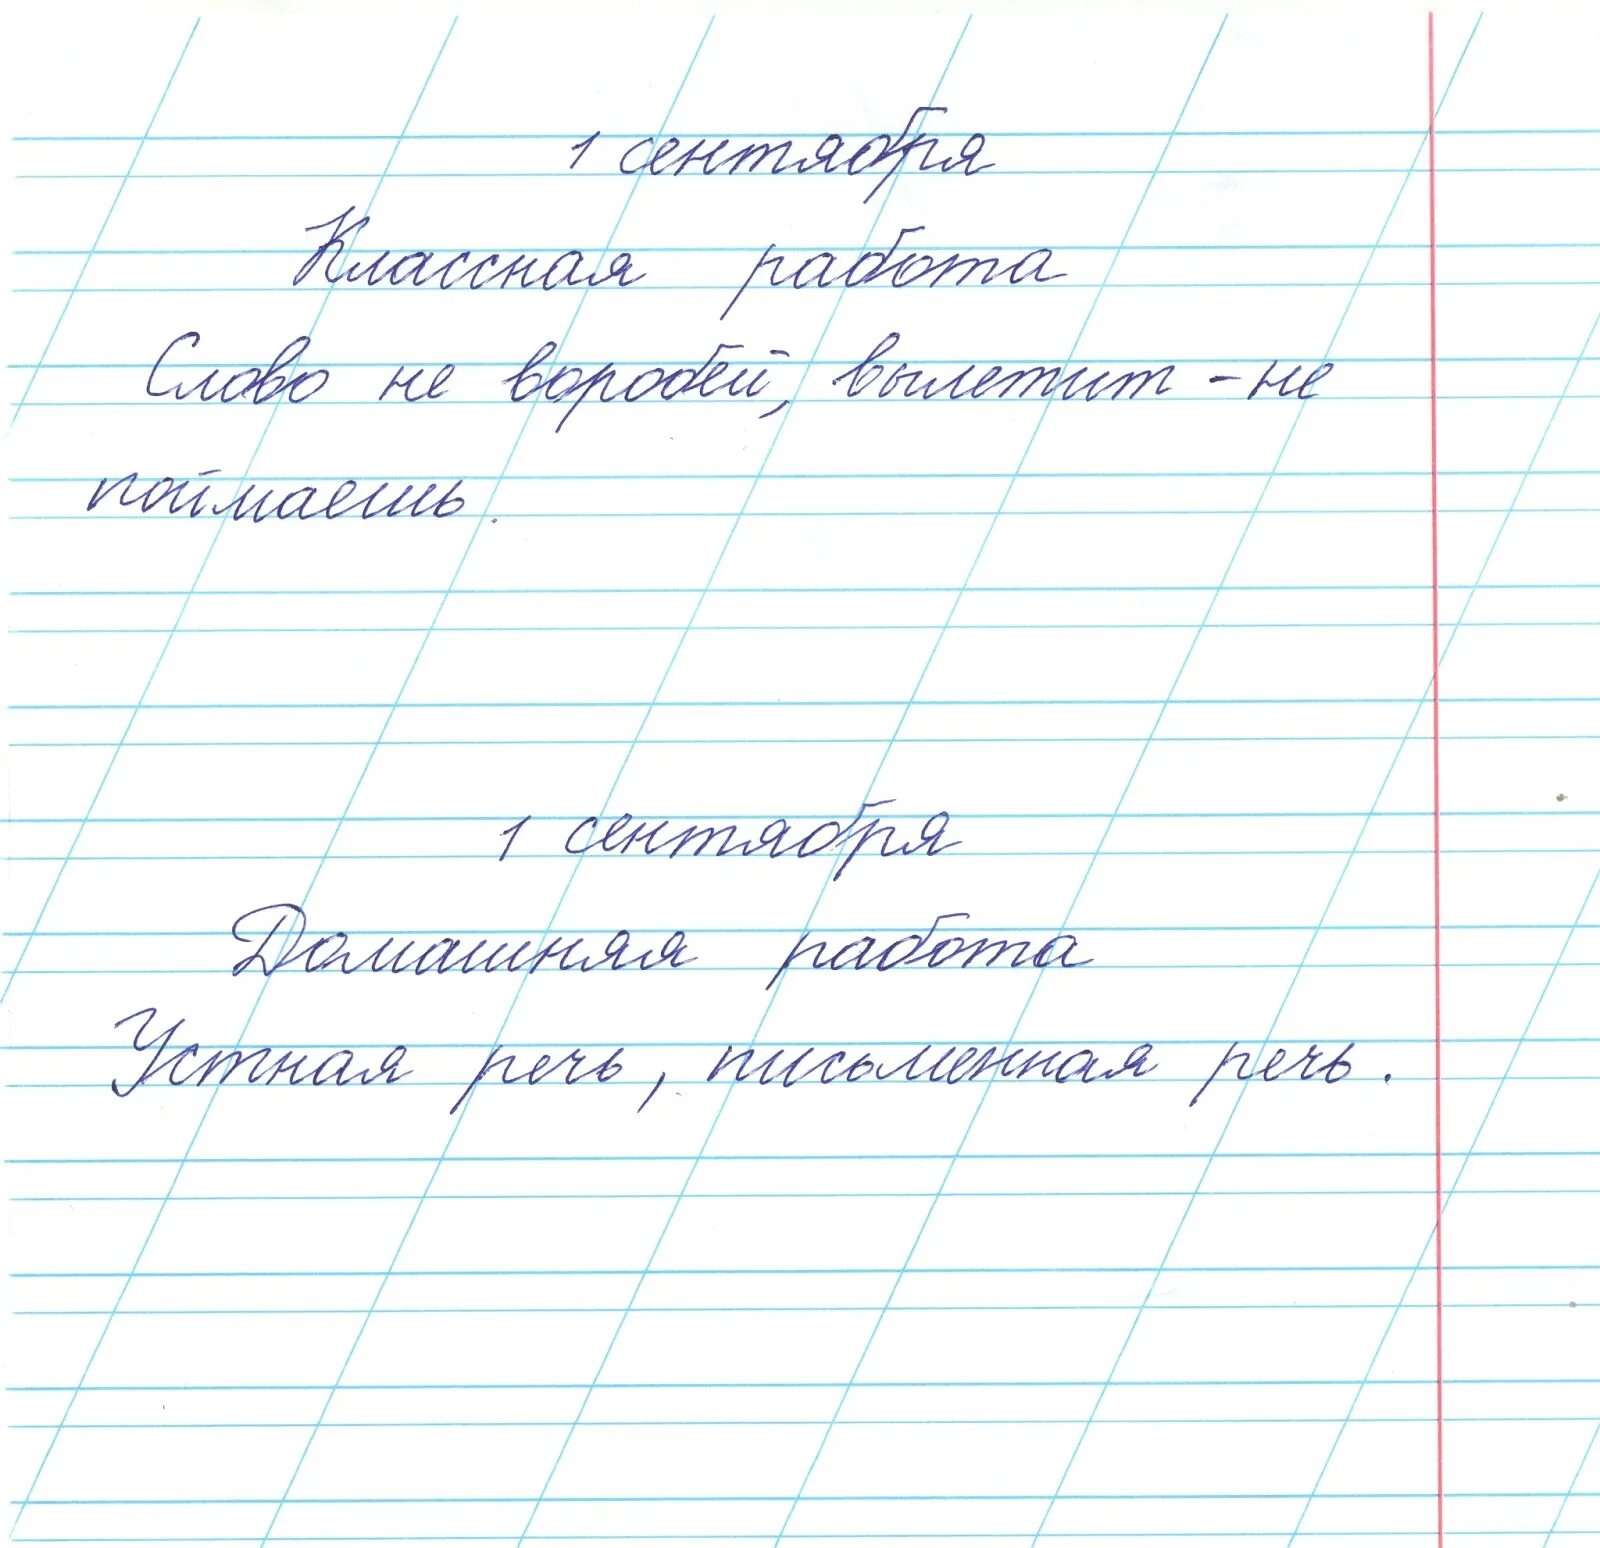 1 сентября
Классная работа
Слово не воробей, вылетит - не
поймаешь.
1 сентября
Домашняя работа
Устная речь, письменная речь.